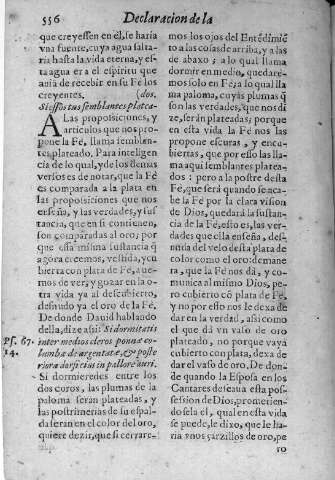 556
Declaracion de la
que creyessen en èl, se haria
vna fuente, cuya agua salta-
ria hasta la vida eterna, y es-
ta agua era el espiritu que
auia de recebir en su Fè los
creyentes. (dos.
Si essos tus semblantes platea-
A Las proposiciones, y
articulos que nos pro-
pone la Fè, llama semblan-
tes plateado. Para inteligen
cia de lo qual, y de los demas
versos es de notar, que la Fè
es comparada a la plata en
las proposiciones que nos
enseña, y las verdades, y sus
tancia, que en si contienen,
son comparadas al oro; por
que essa misma sustancia q̃
agora creemos, vestida, y cu
bierta con plata de Fè, aue-
mos de ver, y gozar en la o-
tra vida ya al descubierto,
desnudo ya el oro de la Fè.
De donde Dauid hablando
della, dize assi: Si dormiatis
Ps. 67. inter medios cleros pennæ co-
14. lumbæ deargentatæ, & poste
riora dorsi eius in pallore auri.
Si dormieredes entre los
dos coros, las plumas de la
paloma seràn plateadas, y
las postrimerias de su espal-
da seran en el color del oro,
quiere dezir, que si cerrare-
mos los ojos del Entẽdimiẽ
to a las cosas de arriba, y a las
de abaxo; a lo qual llama
dormir en medio, quedare-
mos solo en Fè, a lo qual lla
ma paloma, cuyas plumas q̃
son las verdades, que nos di
ze, seràn plateadas; porque
en esta vida la Fè nos las
propone escuras, y encu-
biertas, que por esso las lla-
ma aqui semblantes platea-
dos: pero a la postre desta
Fè, que serà quando se aca-
be la Fè por la clara vision
de Dios, quedarà la sustan-
cia de la Fè, esto es, las ver-
dades que ella enseña, des-
nuda del velo desta plata de
color como el oro: de mane
ra, que la Fè nos dà, y co-
munica al mismo Dios, pe-
ro cubierto cõ plata de Fè,
y no por esso nos le dexa de
dar en la verdad, assi como
el que dà vn vaso de oro
plateado, no porque vaya
cubierto con plata, dexa de
dar el vaso de oro. De don-
de quando la Esposa en los
Cantares deseaua esta pos-
session de Dios, prometien-
dosela el, qual en esta vida
se puede, le dixo, que le ha-
ria vnos çarzillos de oro, pe
ro